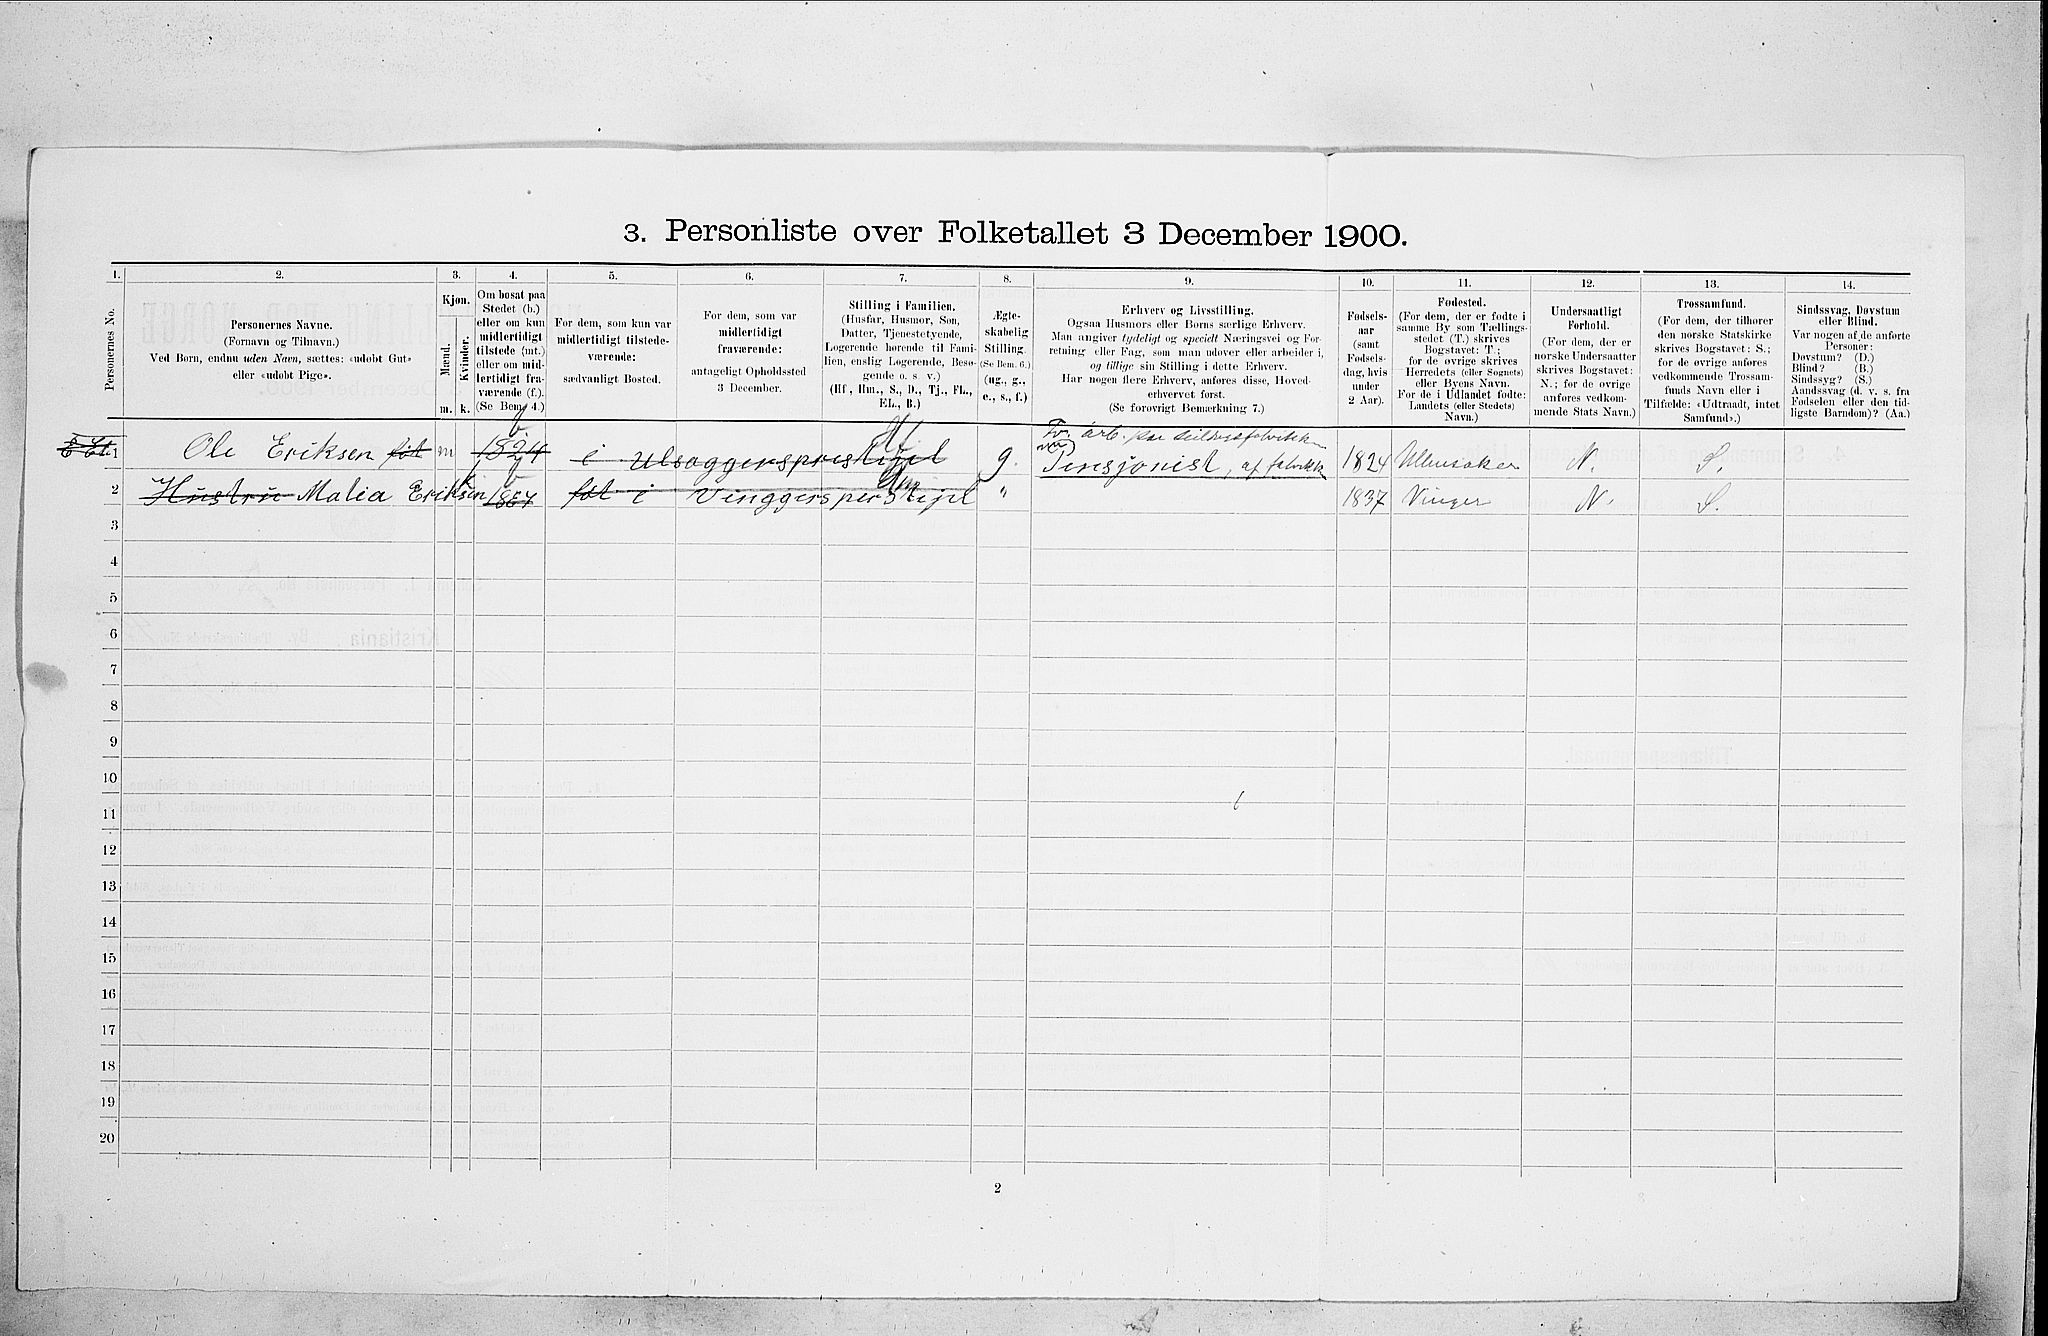 3. Personliste over Folketallet 3 December 1900.
1. 2. 3. 4. 5. 6. 7. 8. 9. 10. 11. 12. 13. 14.
Personernes No.
Personernes Navne.
(Fornavn og Tilnavn.)
Ved Børn, endnu uden Navn, sættes: «udøbt Gut»
eller «udøbt Pige».
Kjøn.
Mænd.
Kvinder.
m. k.
Om bosat paa
Stedet (b.)
eller om kun
midlertidigt
tilstede (mt.)
eller om mid-
lertidigt fra-
værende (f.).
(Se Bem. 4.)
For dem, som kun var
midlertidigt tilstede-
værende:
sædvanligt Bosted.
For dem, som var
midlertidigt
fraværende:
antageligt Opholdssted
3 December.
Stilling i Familien.
(Husfar, Husmor, Søn,
Datter, Tjenestetyende,
Logerende hørende til Fami-
lien, enslig Logerende, Besø-
gende o. s. v.)
(Hf., Hm., S., D., Tj., FL.,
EL., B.)
Ægte-
skabelig
Stilling.
(Se Bem. 6.)
(ug., g.,
e., s., f.)
Erhverv og Livsstilling.
Ogsaa Husmors eller Børns særlige Erhverv.
Man angiver tydeligt og specielt Næringsvei og For-
retning eller Fag, som man udøver eller arbeider i,
og tillige sin Stilling i dette Erhverv.
Har nogen flere Erhverv, anføres disse, Hoved-
erhvervet først.
(Se forøvrigt Bemærkning 7.)
Fødsels-
aar
(samt
Fødsels-
dag, hvis
under
2 Aar).
Fødested.
(For dem, der er fødte i
samme By som Tællings-
stedet (T.) skrives
Bogstavet: T.;
for de øvrige skrives
Herredets (eller Sognets)
eller Byens Navn.
For de i Udlandet fødte:
Landets (eller Stedets)
Navn.)
Undersaatligt
Forhold.
(For dem, der er
norske Undersaatter
skrives Bogstavet:
N.; for de øvrige
anføres vedkom-
mende Stats Navn.)
Trossamfund.
(For dem, der tilhører
den norske Statskirke
skrives Bogstavet: S.;
for de øvrige anføres
vedkommende Trossam-
funds Navn eller i
Tilfælde: «Udtraadt, intet
Samfund».)
Sindssvag, Døvstum
eller Blind.
Var nogen af de anførte
Personer:
Døvstum? (D.)
Blind? (B.)
Sindssyg? (S.)
Aandssvag (d. v. s. fra
Fødselen eller den tid-
ligste Barndom)? (Aa.)
1 Ole Eriksen føt m b 1824 i Ulsaggersprestgjel Hf g. Pensjonist, af fabrikk 1824 Ullensaker N. S.
2 Hustru Malia Eriksen k b 1837 føt i Vinggersperstgjel Hm " 1837 Vinger N. S.
3
4
5
6
7
8
9
10
11
12
13
14
15
16
17
18
19
20
2